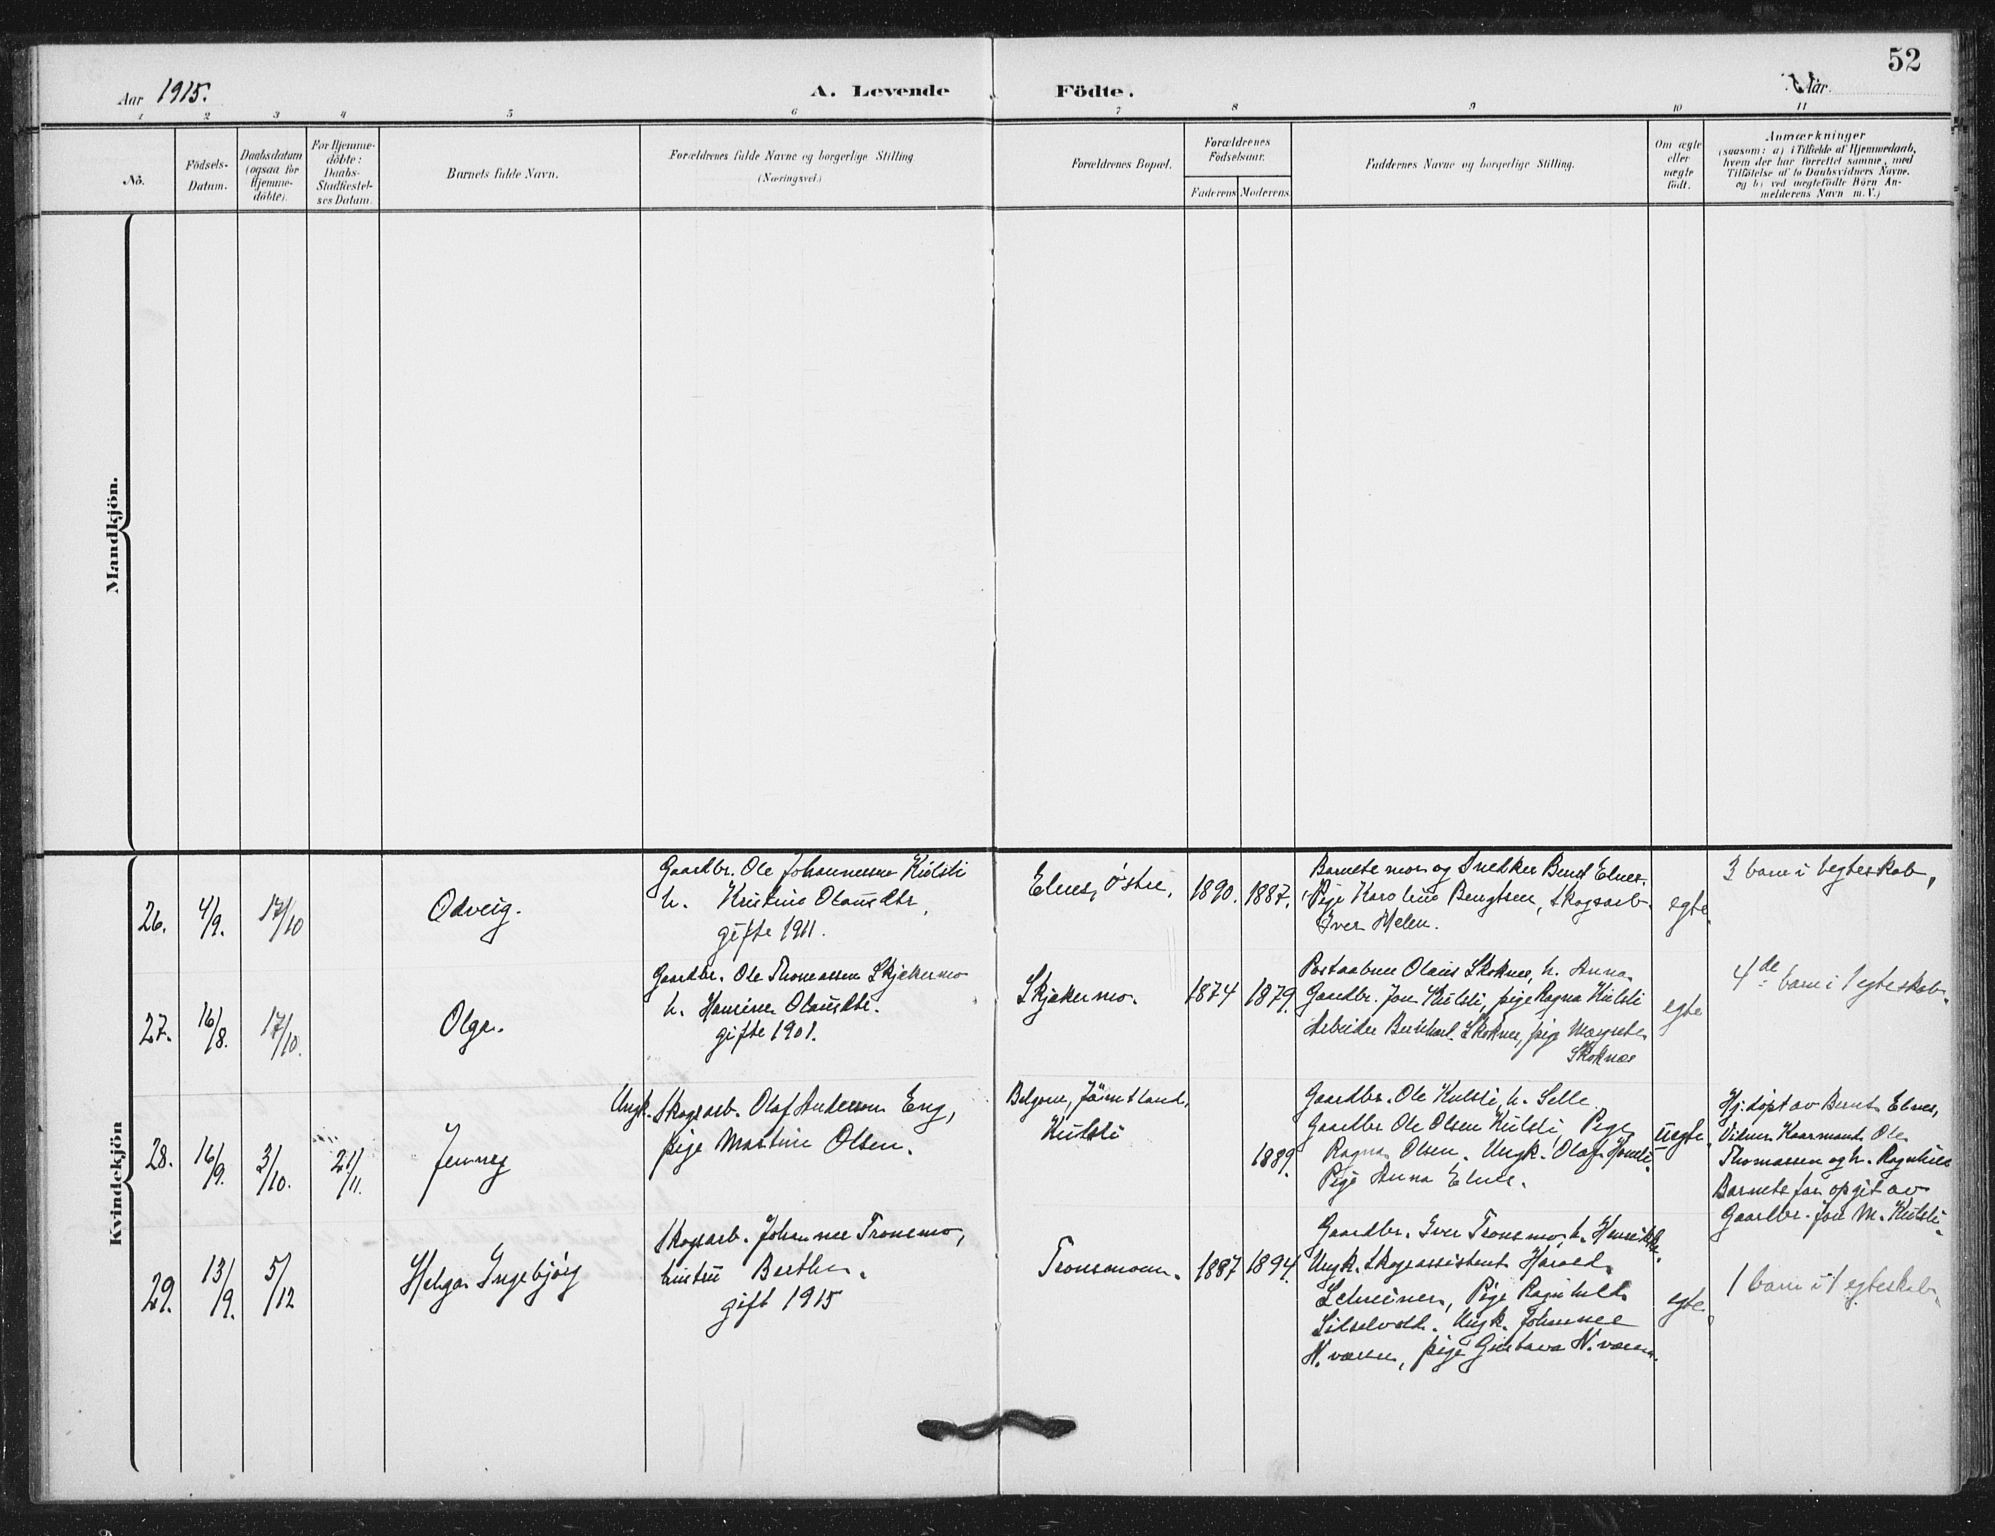 52
Aar 1915.
A. Levende Födte.
Aar
1 2 3 4 5 6 7 8 9 10 11
No.
Födsels-
Datum.
Daabsdatum
(ogsaa for
Hjemme-
döbte).
For Hjemme-
döbte:
Daabs-
Stadfæstel-
ses Datum.
Barnets fulde Navn.
Forældrenes fulde Navne og borgerlige Stilling
(Næringsvei.)
Forældrenes Bopæl.
Forældrenes
Födselsaar.
Faderens Moderens
Faddernes Navne og borgerlige Stilling.
Om ægte
eller
uægte
födt.
Anmærkninger
(saasom: a) i Tilfælde af Hjemmedaab,
hvem der har forrettet samme, med
Tilföielse af to Daabsvidners Navne,
og b) ved uægtefödte Börn An-
melderens Navn m. V.)
Mandkjön.
Kvindekjön
26.
4/9.
17/10
Odveig.
Gaardbr. Ole Johannessen Külsli
h. Kristine Olausdtr,
gifte 1911.
Elnes, østre,
1890.
1887.
Barnets mor og Snekker Bernt Elnes.
Pige Karoline Bengtsen, Skogsarb.
Iver Helen.
egte.
3 barn i 1 egteskab,
27.
16/8.
17/10.
Olga.
Gaardbr. Ole Thomassen Skjækermo
h. Hansine Olausdtr.
gifte 1901.
Skjækermo.
1874
1879.
Postaabner Olaus Skoknes, h. Anna
Gaardbr. Jon Külsli, pige Ragna Külsli
Arbeider Bernhard Skoknes, pige Magrete
Skoknes
egte
4de barn i 1 egteskab.
28.
16/9.
3/10.
21/11.
Jenney
Ungk. Skogsarb. Olaf Anderson Eng,
pige Martine Olsen.
Jämtland,
Külsli
1889.
Gaardbr. Ole Kulsli, h. Selle
Gaardbr Ole Olsen Külsli Pige
Ragna Olsen. Ungk. Olaf
Pige Anna Elnes.
uegte.
Hj. døpt av Bernt Elnes,
Vidner Ole
Thomassen og h. Ragnhild
Barnets far opgit av
Gaardbr. Jon M. Külsli.
29.
13/9.
5/12
Helga Ingebjørg
Skogsarb. Johannes Tronsmo,
hustru Berthe.
gift 1915
Tronsmoen.
1887
1894.
Gaardbr. Iver Tronsmo, h.
Ungk. Skogassistent Harald
Schreiner, Pige Ragnhild
Ungk. Johannes
N. værren, pige Gustava N. værren.
egte
1 barn i 1 egteskab.